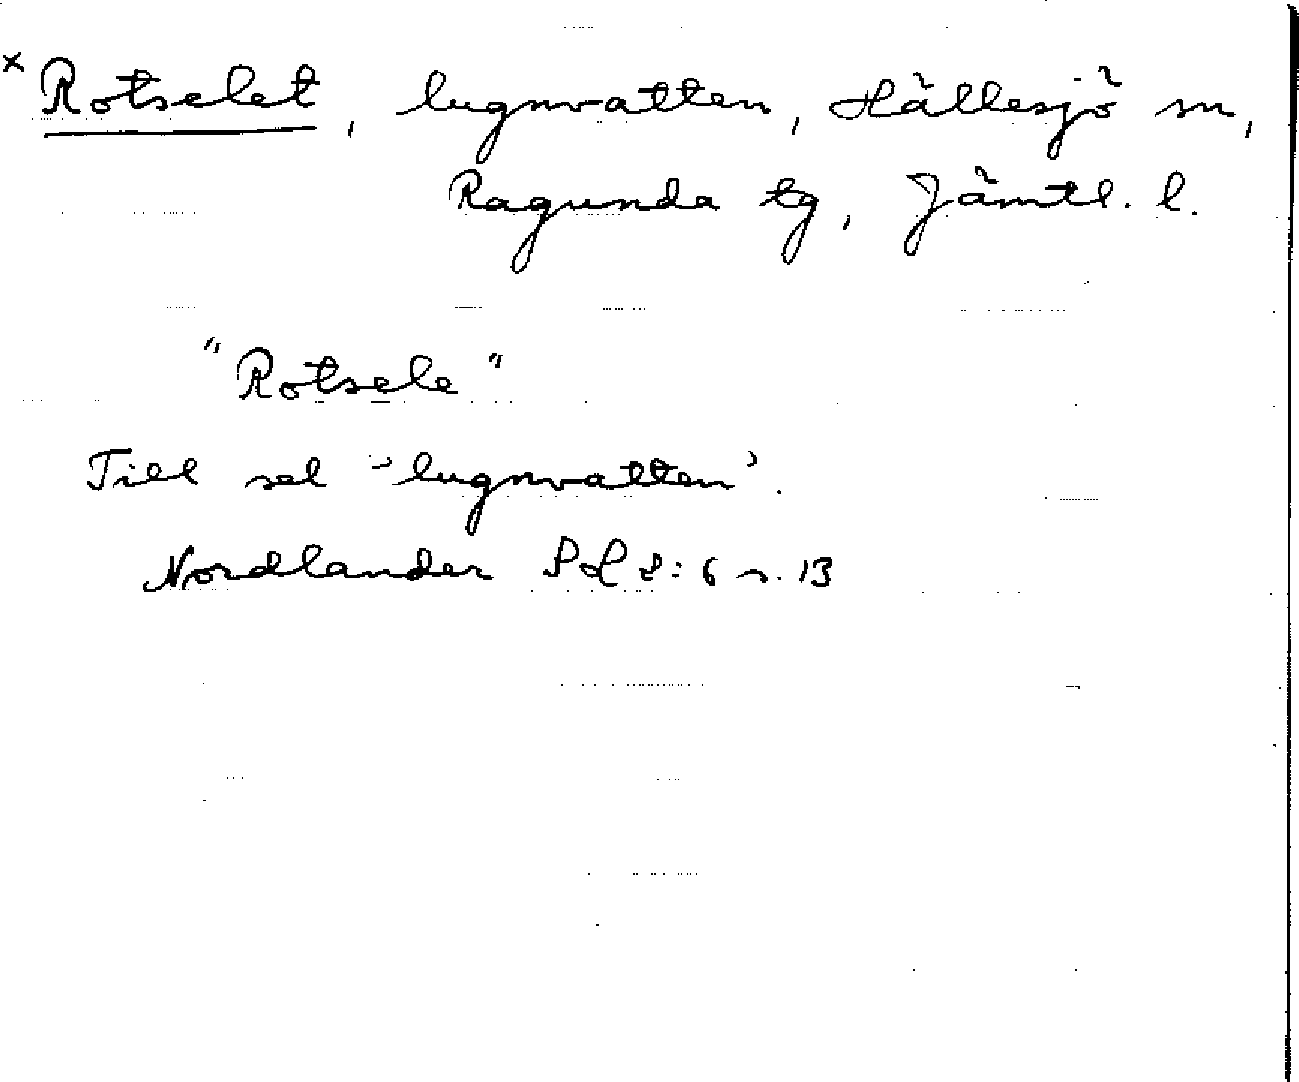 x Rotselet, lugnvatten, Hällesjö sn,
Ragunda tg, Jämtl. l.
"Rotsele"
Till sel 'lugnvatten'.
Nordlander 6 s. 13